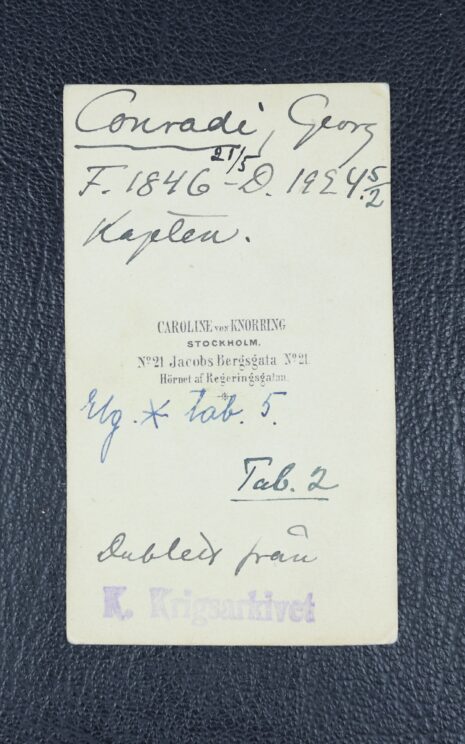 Conradi, Georg
F. 1846 21/5 - D. 1924 5/2
Kapten.
CAROLINE von KNORRING
STOCKHOLM.
No 21 Jacobs Bergsgata No 21.
Hörnet af Regeringsgatan.
Elg. * tab. 5.
Tab. 2
Dublett från
K. Krigsarkivet